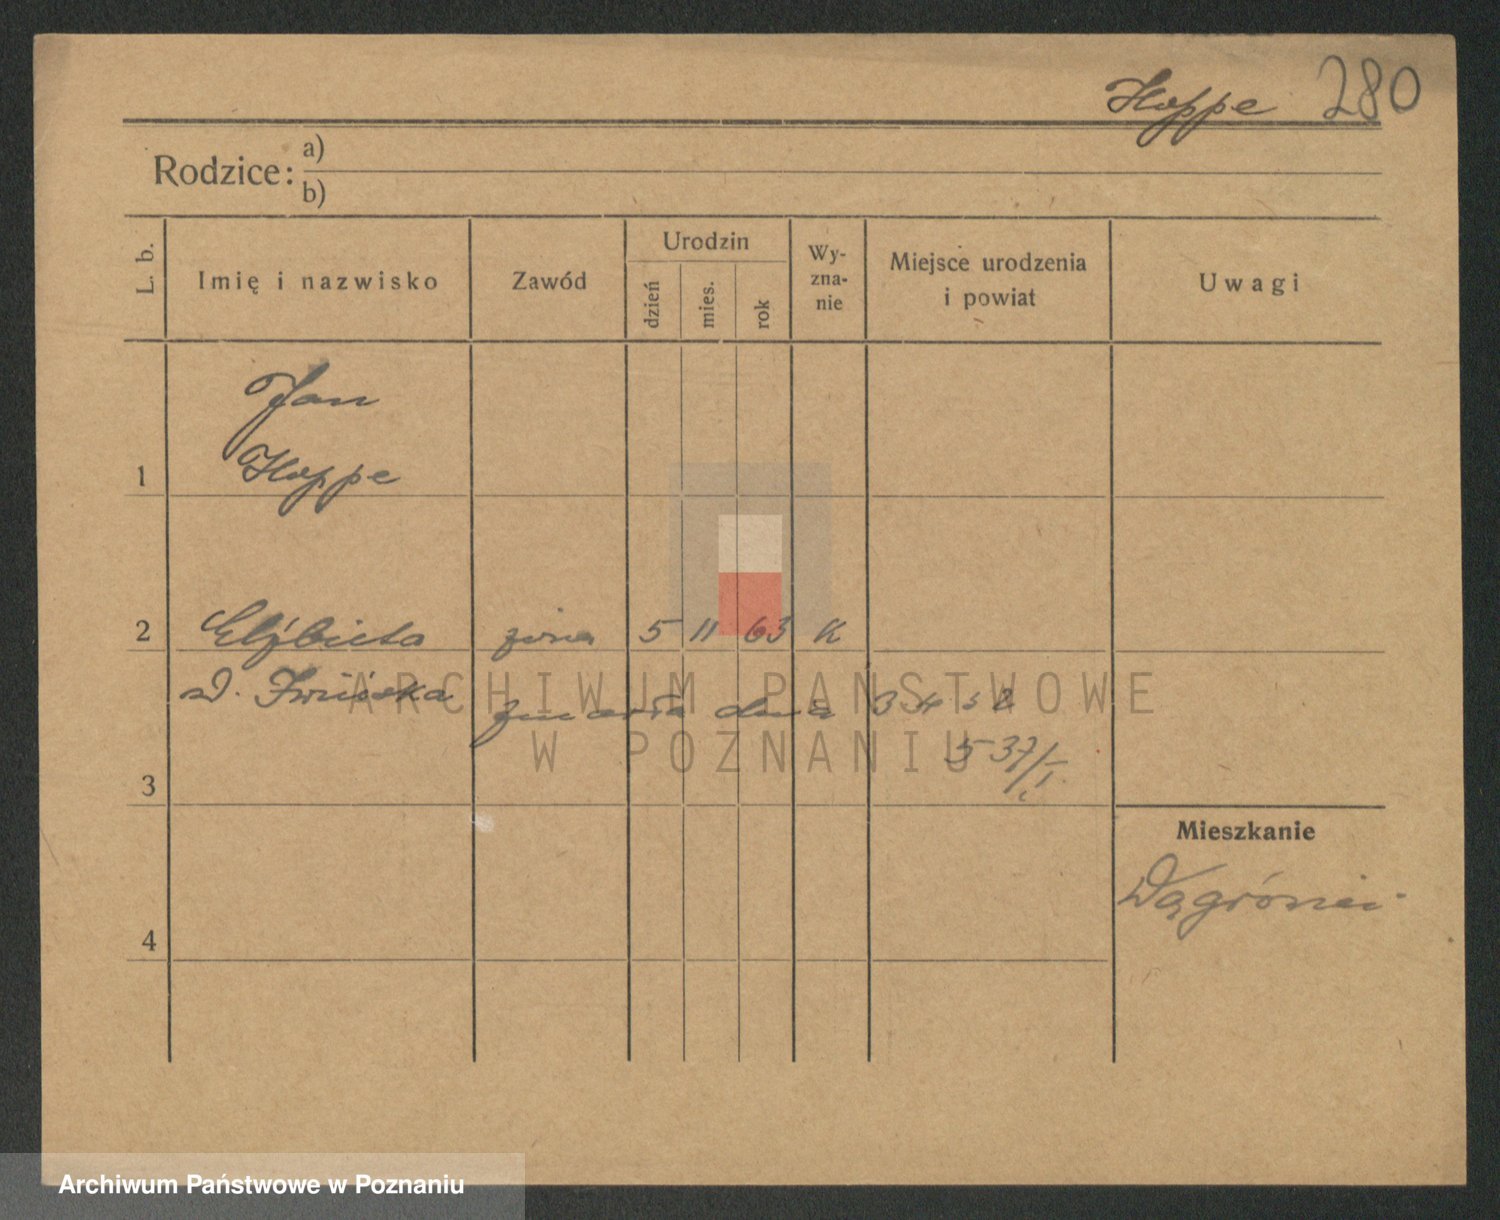 Hoppe 280
Rodzice: a)
b)
L. b.
Imię i nazwisko
Zawód
Urodzin
dzień
mies.
rok
Wy-
zna-
nie
Miejsce urodzenia
i powiat
Uwagi
Jan
1 Hoppe
2 Elżbieta żona 5 11 63 K
zmarła dnia 3 4 52
ARCHIWUM PAŃSTWOWE
W POZNANIU
537/I
3
Mieszkanie
4
Archiwum Państwowe w Poznaniu